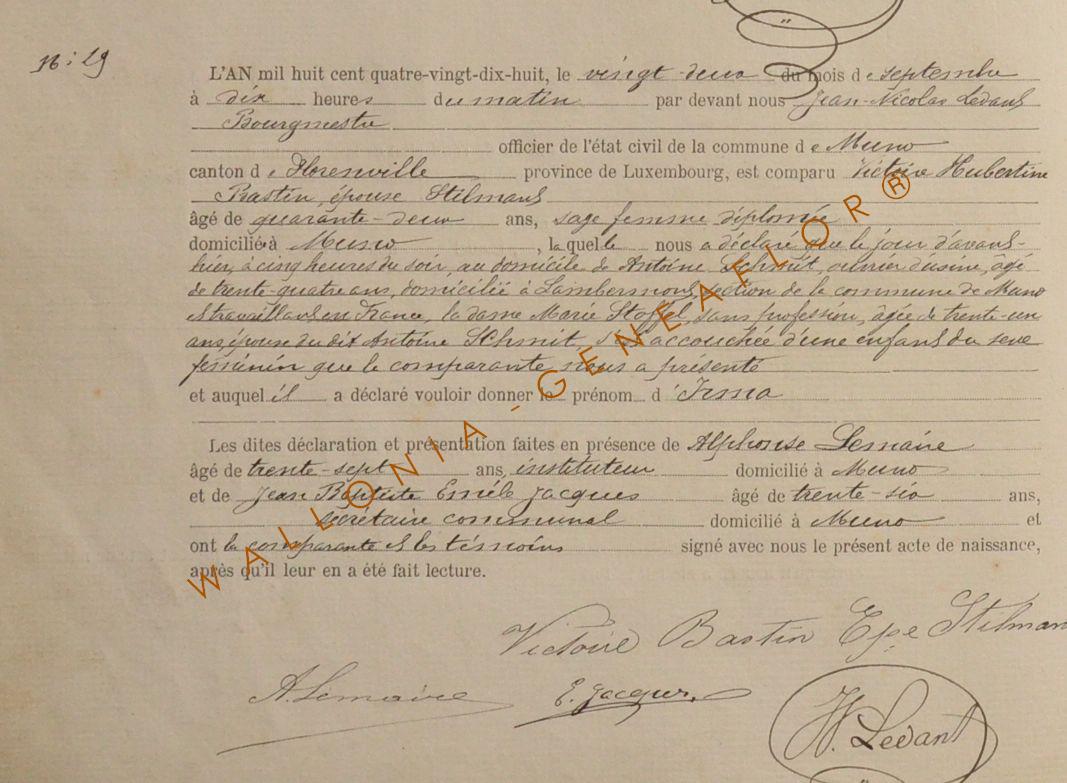 N: 29
L'AN mil huit cent quatre-vingt-dix-huit, le vingt deux du mois de septembre
à dix heures du matin par devant nous Jean-Nicolas Ledant
Bourgmestre
officier de l'état civil de la commune de Muno
canton de Florenville province de Luxembourg, est comparu Victoire Hubertine
Bastin, épouse Stilmant
âgé de quarante-deux ans, sage femme diplômée
domicilié à Muno, laquelle nous a déclaré que le jour d'avant-
hier, à cinq heures du soir, au domicile de Antoine Schmit, ouvrier d'usine, âgé
de trente-quatre ans, domicilié à Lambermont, section de la commune de Muno
et travaillant en France, la dame Marie Stoffel, sans profession, âgée de trente-un
ans, épouse du dit Antoine Schmit, est accouchée d'une enfant du sexe
féminin que la comparante nous a présenté
et auquel il a déclaré vouloir donner le prénom d'Irma
Les dites déclaration et présentation faites en présence de Alphonse Lemaire
âgé de trente-sept ans, instituteur domicilié à Muno
et de Jean Baptiste Emile Jacques âgé de trente-six ans,
secrétaire communal domicilié à Muno et
ont la comparante et les témoins signé avec nous le présent acte de naissance,
après qu'il leur en a été fait lecture.
Victoire Bastin Epse Stilmant
A. Lemaire E. Jacques
Ledant
WALLONIA - GENEAFLOR ®